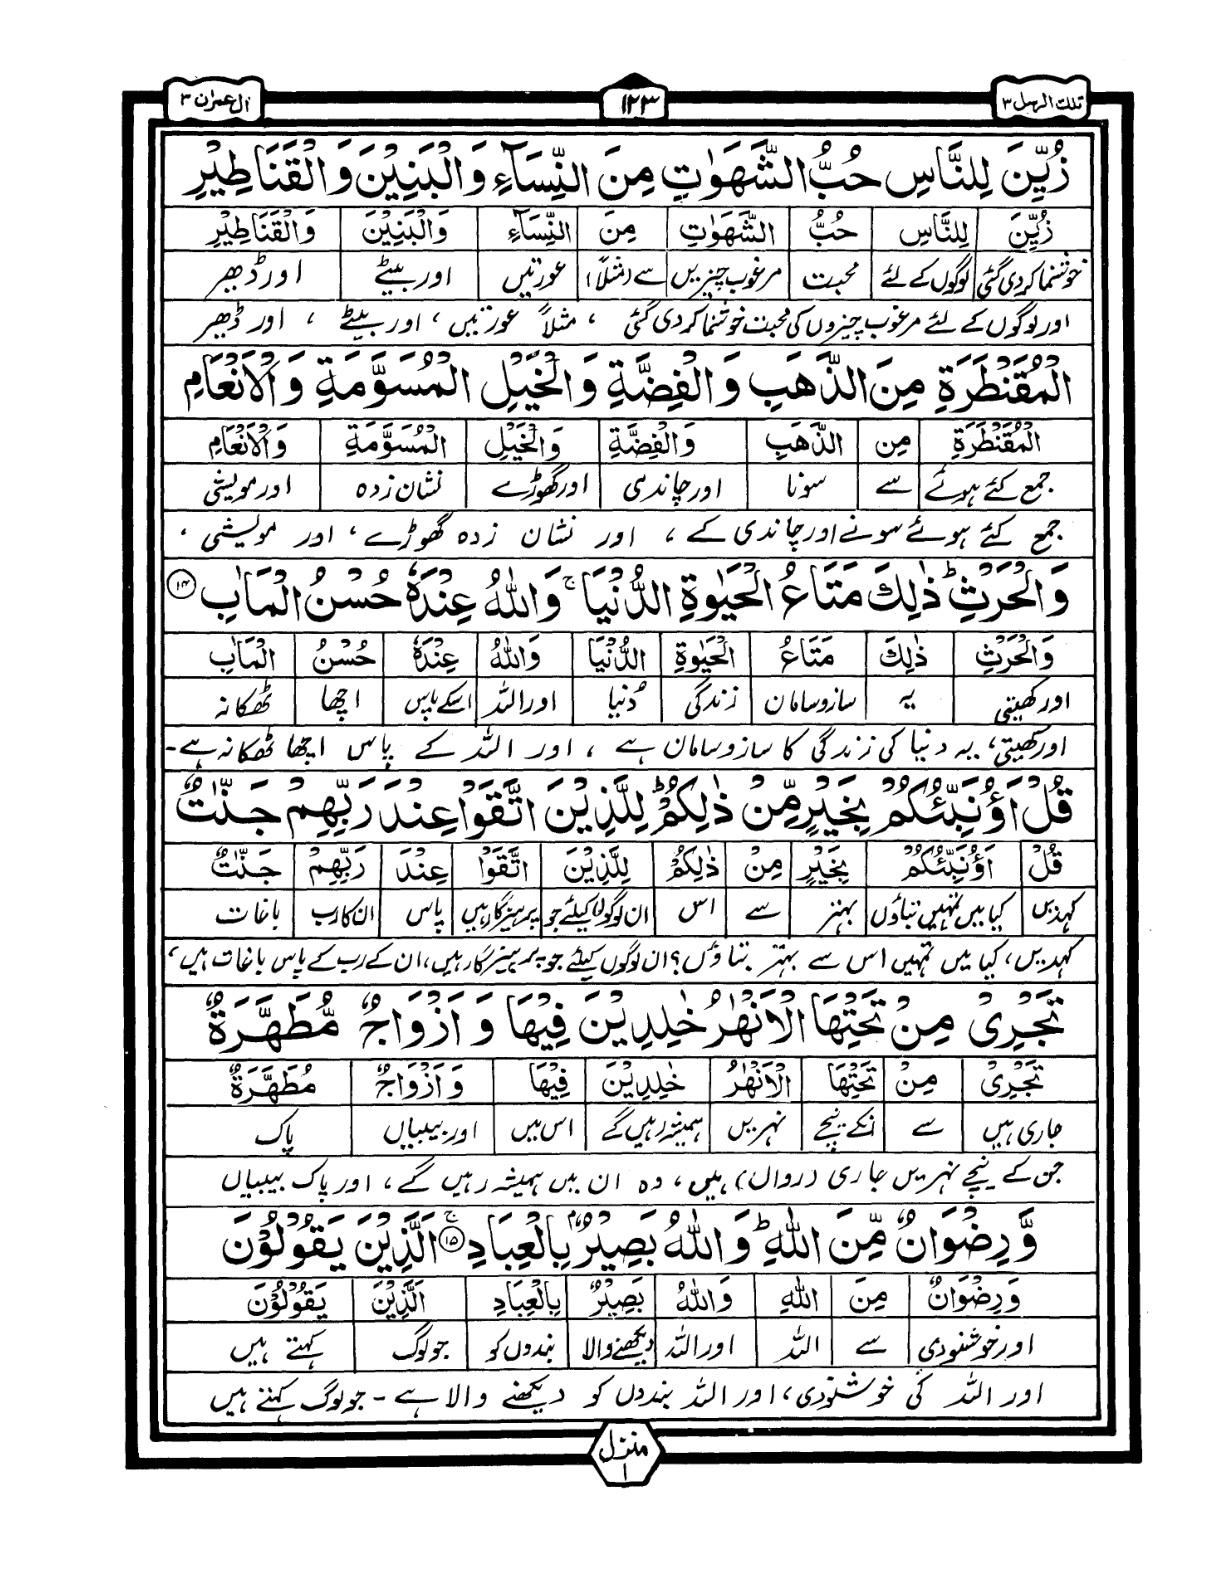 تلك الرسل ٣
١٢٣
ال عمران ٣
زُيِّنَ لِلنَّاسِ حُبُّ الشَّهَوٰتِ مِنَ النِّسَآءِ وَالْبَنِيْنَ وَالْقَنَاطِيْرِ
زُيِّنَ لِلنَّاسِ حُبُّ الشَّهَوٰتِ مِنَ النِّسَآءِ وَالْبَنِيْنَ وَالْقَنَاطِيْرِ
خوشنما کردی گئی لوگوں کے لئے محبت مرغوب چیزیں سے (مثلاً) عورتیں اور بیٹے اور ڈھیر
اور لوگوں کے لئے مرغوب چیزوں کی محبت خوشنما کردی گئی ، مثلاً عورتیں ، اور بیٹے ، اور ڈھیر
الْمُقَنْطَرَةِ مِنَ الذَّهَبِ وَالْفِضَّةِ وَالْخَيْلِ الْمُسَوَّمَةِ وَالْاَنْعَامِ
الْمُقَنْطَرَةِ مِنَ الذَّهَبِ وَالْفِضَّةِ وَالْخَيْلِ الْمُسَوَّمَةِ وَالْاَنْعَامِ
جمع کئے ہوئے سے سونا اور چاندی اور گھوڑے نشان زدہ اور مویشی
جمع کئے ہوئے سونے اور چاندی کے ، اور نشان زدہ گھوڑے ، اور مویشی ،
وَالْحَرْثِ ؕ ذٰلِكَ مَتَاعُ الْحَيٰوةِ الدُّنْيَا ۚ وَاللّٰهُ عِنْدَهٗ حُسْنُ الْمَاٰبِ ۝۱۴
وَالْحَرْثِ ذٰلِكَ مَتَاعُ الْحَيٰوةِ الدُّنْيَا وَاللّٰهُ عِنْدَهٗ حُسْنُ الْمَاٰبِ
اور کھیتی یہ سازوسامان زندگی دُنیا اور اللہ اسکے پاس اچھا ٹھکانہ
اور کھیتی ، یہ دنیا کی زندگی کا سازوسامان ہے ، اور اللہ کے پاس اچھا ٹھکانہ ہے۔
قُلْ اَؤُنَبِّئُكُمْ بِخَيْرٍ مِّنْ ذٰلِكُمْ ؕ لِلَّذِيْنَ اتَّقَوْا عِنْدَ رَبِّهِمْ جَنّٰتٌ
قُلْ اَؤُنَبِّئُكُمْ بِخَيْرٍ مِنْ ذٰلِكُمْ لِلَّذِيْنَ اتَّقَوْا عِنْدَ رَبِّهِمْ جَنّٰتٌ
کہدیں کیا میں تمہیں بتاؤں بہتر سے اس ان لوگوں کیلئے جو پرہیزگار ہیں پاس ان کا رب باغات
کہدیں، کیا میں تمہیں اس سے بہتر بتاؤں؟ ان لوگوں کیلئے جو پرہیزگار ہیں، ان کے رب کے پاس باغات ہیں ،
تَجْرِىْ مِنْ تَحْتِهَا الْاَنْهٰرُ خٰلِدِيْنَ فِيْهَا وَ اَزْوَاجٌ مُّطَهَّرَةٌ
تَجْرِىْ مِنْ تَحْتِهَا الْاَنْهٰرُ خٰلِدِيْنَ فِيْهَا وَ اَزْوَاجٌ مُطَهَّرَةٌ
جاری ہیں سے انکے نیچے نہریں ہمیشہ رہیں گے اس میں اور بیبیاں پاک
جن کے نیچے نہریں جاری (رواں) ہیں ، وہ ان میں ہمیشہ رہیں گے ، اور پاک بیبیاں
وَّ رِضْوَانٌ مِّنَ اللّٰهِ ؕ وَاللّٰهُ بَصِيْرٌۢ بِالْعِبَادِ ۝۱۵ۚ اَلَّذِيْنَ يَقُوْلُوْنَ
وَ رِضْوَانٌ مِنَ اللّٰهِ وَاللّٰهُ بَصِيْرٌ بِالْعِبَادِ اَلَّذِيْنَ يَقُوْلُوْنَ
اور خوشنودی سے اللہ اور اللہ دیکھنے والا بندوں کو جو لوگ کہتے ہیں
اور اللہ کی خوشنودی ، اور اللہ بندوں کو دیکھنے والا ہے ۔ جو لوگ کہتے ہیں
منزل
١